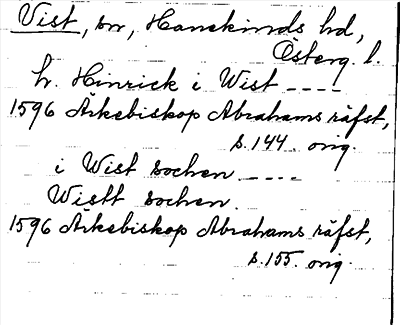 Vist, sn, Hanekinds hd,
Österg. l.
h. Hinrick i Wist ----
1596 Ärkebiskop Abrahams räfst,
s. 144. orig.
i Wist sochen ----
Wistt sochen.
1596 Ärkebiskop Abrahams räfst,
s. 155. orig.